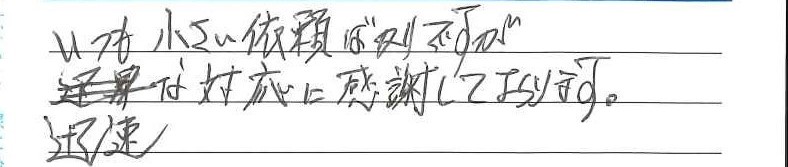 いつも小さい依頼ばかりですが
な対応に感謝しております。
迅速